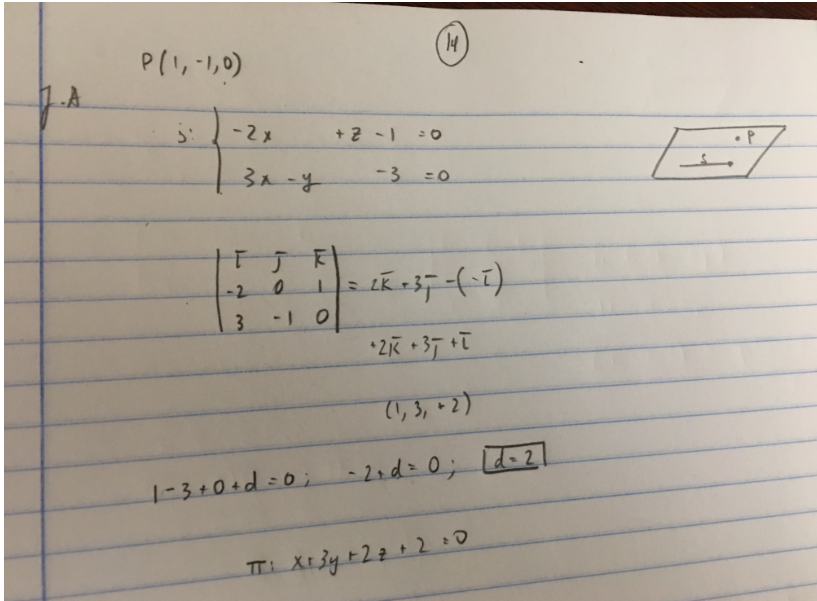 14
P(1, -1, 0)
J.A
s: { -2x + z - 1 = 0
3x - y - 3 = 0
. P
s
| i̅ j̅ k̅ |
| -2 0 1 | = 2k̅ + 3j̅ - (-i̅)
| 3 -1 0 |
+2k̅ + 3j̅ + i̅
(1, 3, +2)
1 - 3 + 0 + d = 0; -2 + d = 0; d = 2
π: x + 3y + 2z + 2 = 0